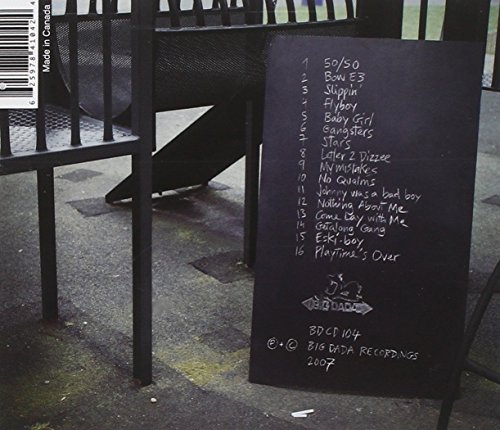 Made in Canada
6 25978 41042 4
1 50/50
2 Bow E3
3 Slippin'
4 Flyboy
5 Baby Girl
6 Gangsters
7 Stars
8 Letter 2 Dizzee
9 My Mistakes
10 No Qualms
11 Johnny was a bad boy
12 Nothing About Me
13 Come Lay with Me
14 Getalong Gang
15 Eski-boy
16 Playtime's Over
BIG DADA
BDCD 104
℗ + © BIG DADA RECORDINGS
2007